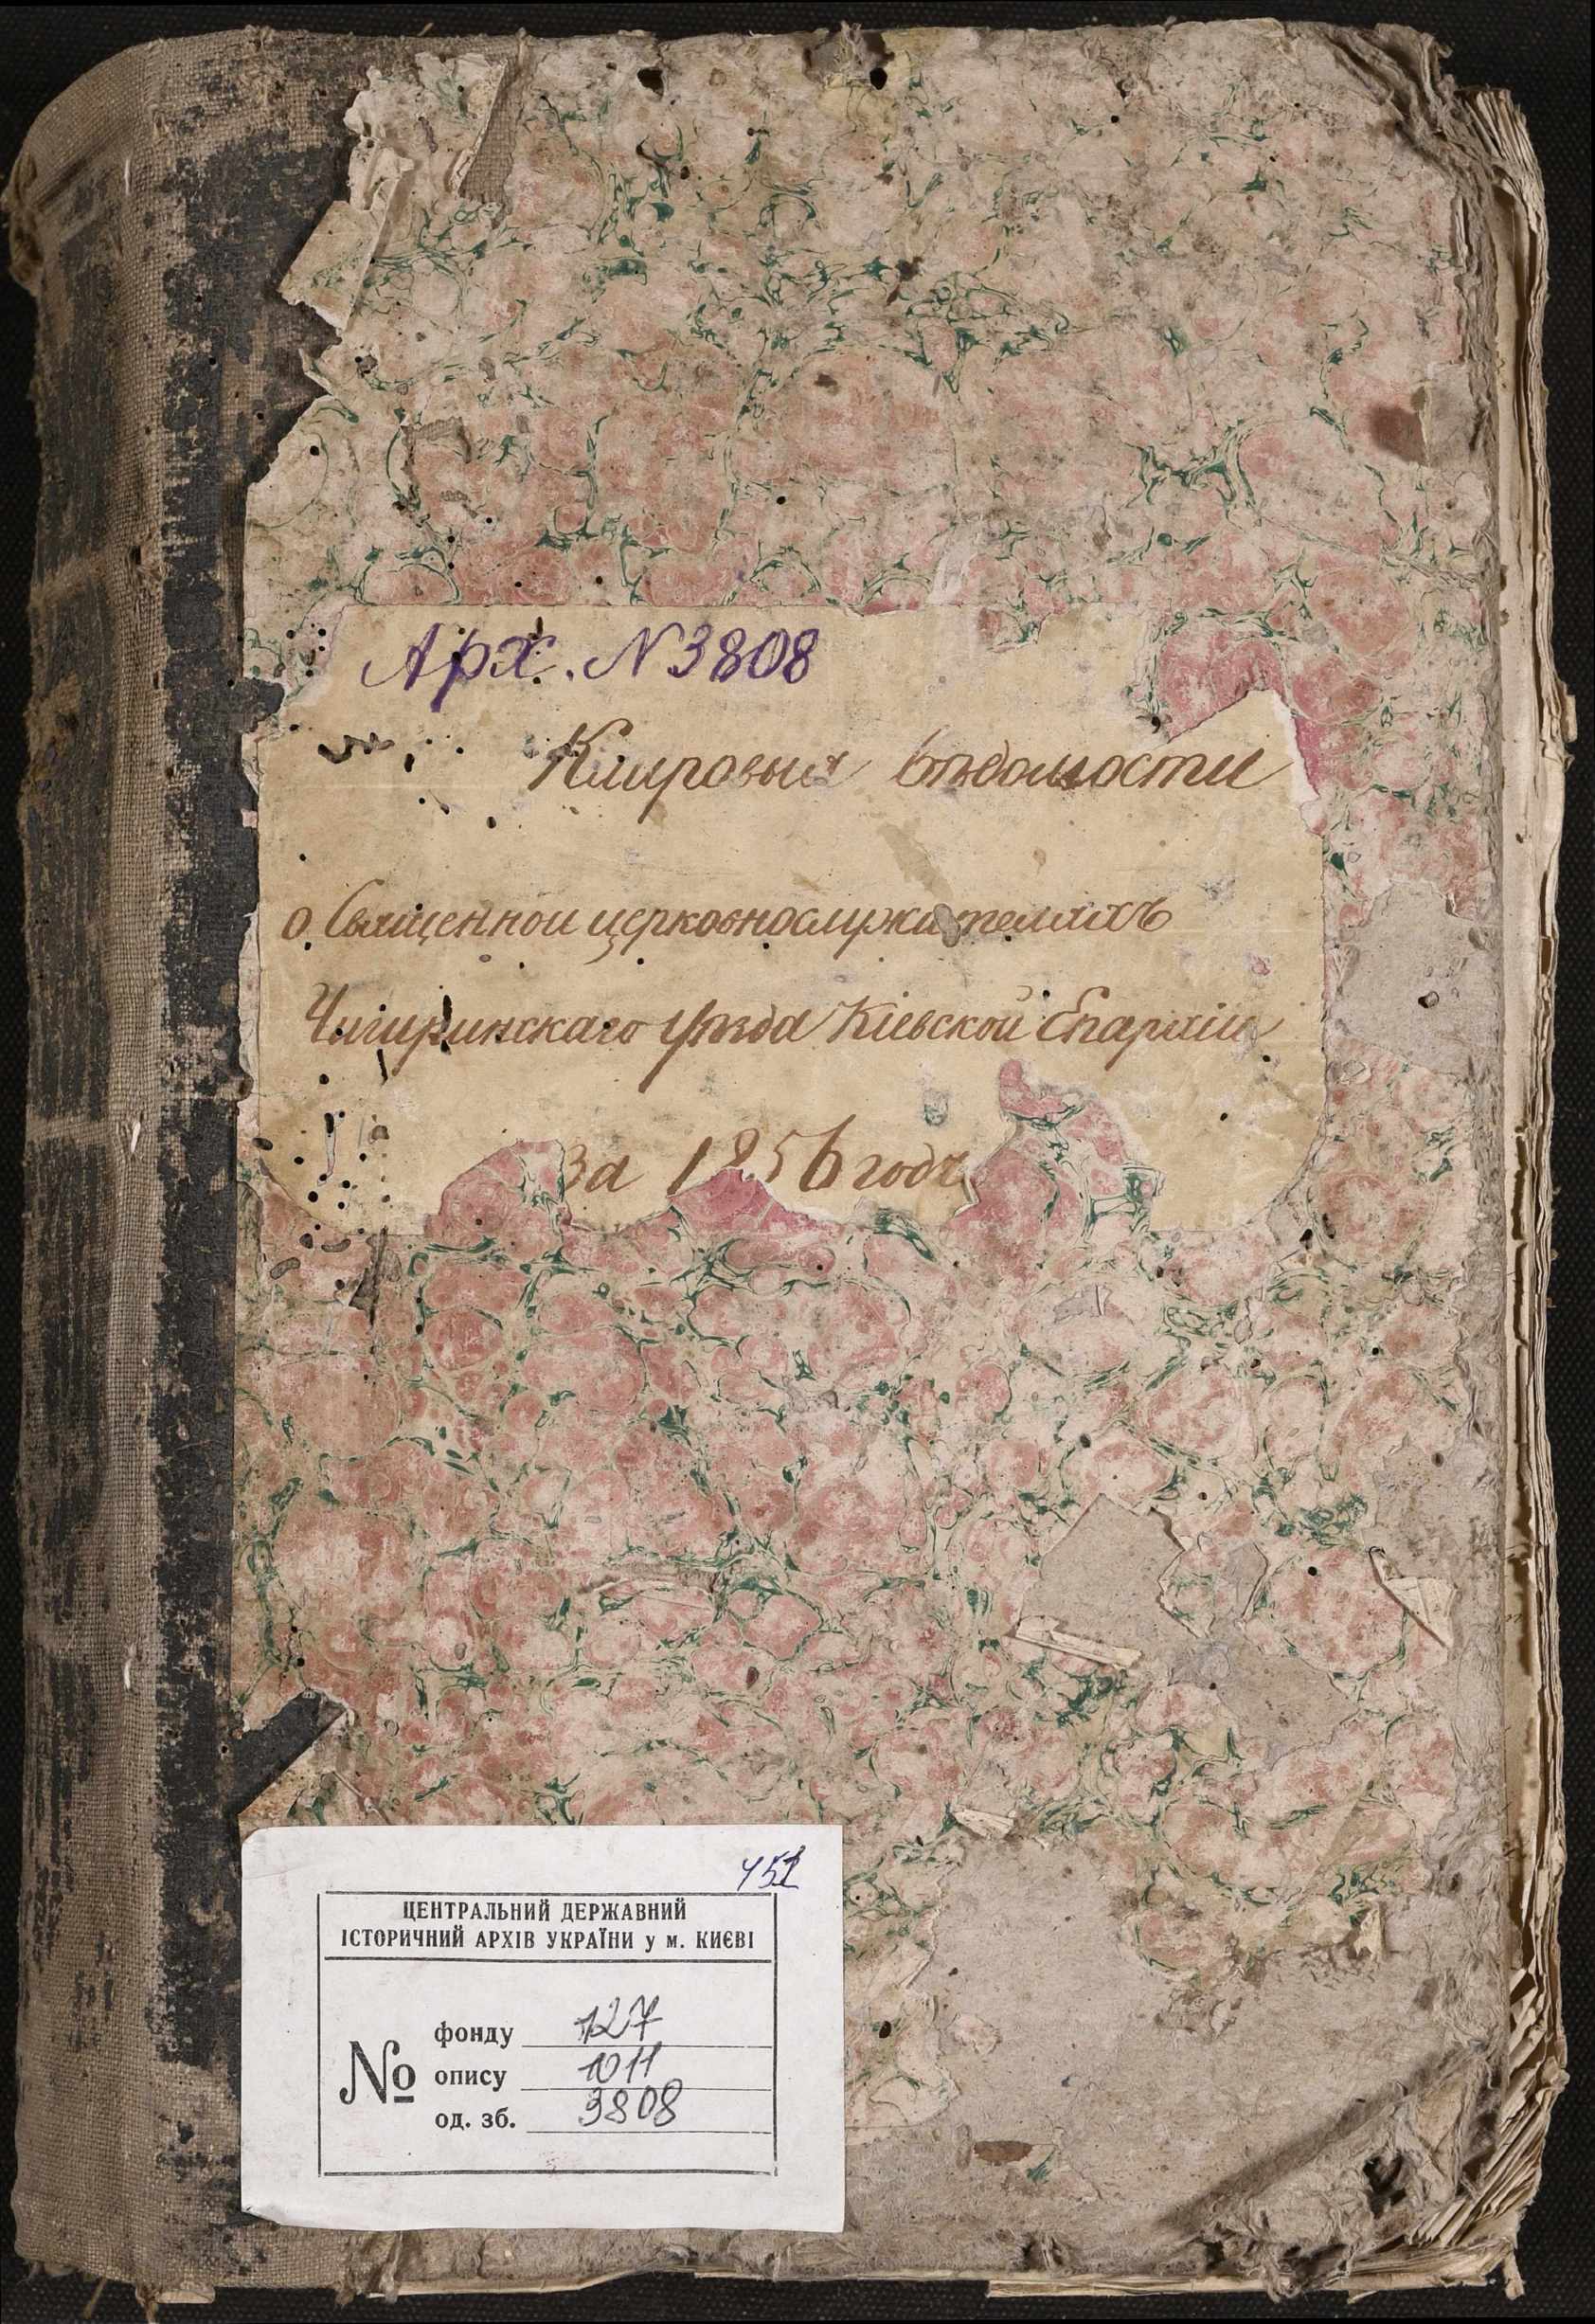 Арх. N 3808
Клировыя вѣдомости
о Священнои церковнослужителяхъ
Чигиринскаго уѣзда Кіевской Епархіи
за 1856 годъ
452
ЦЕНТРАЛЬНИЙ ДЕРЖАВНИЙ
ІСТОРИЧНИЙ АРХІВ УКРАЇНИ у м. КИЄВІ
№
фонду 127
опису 1011
од. зб. 3808